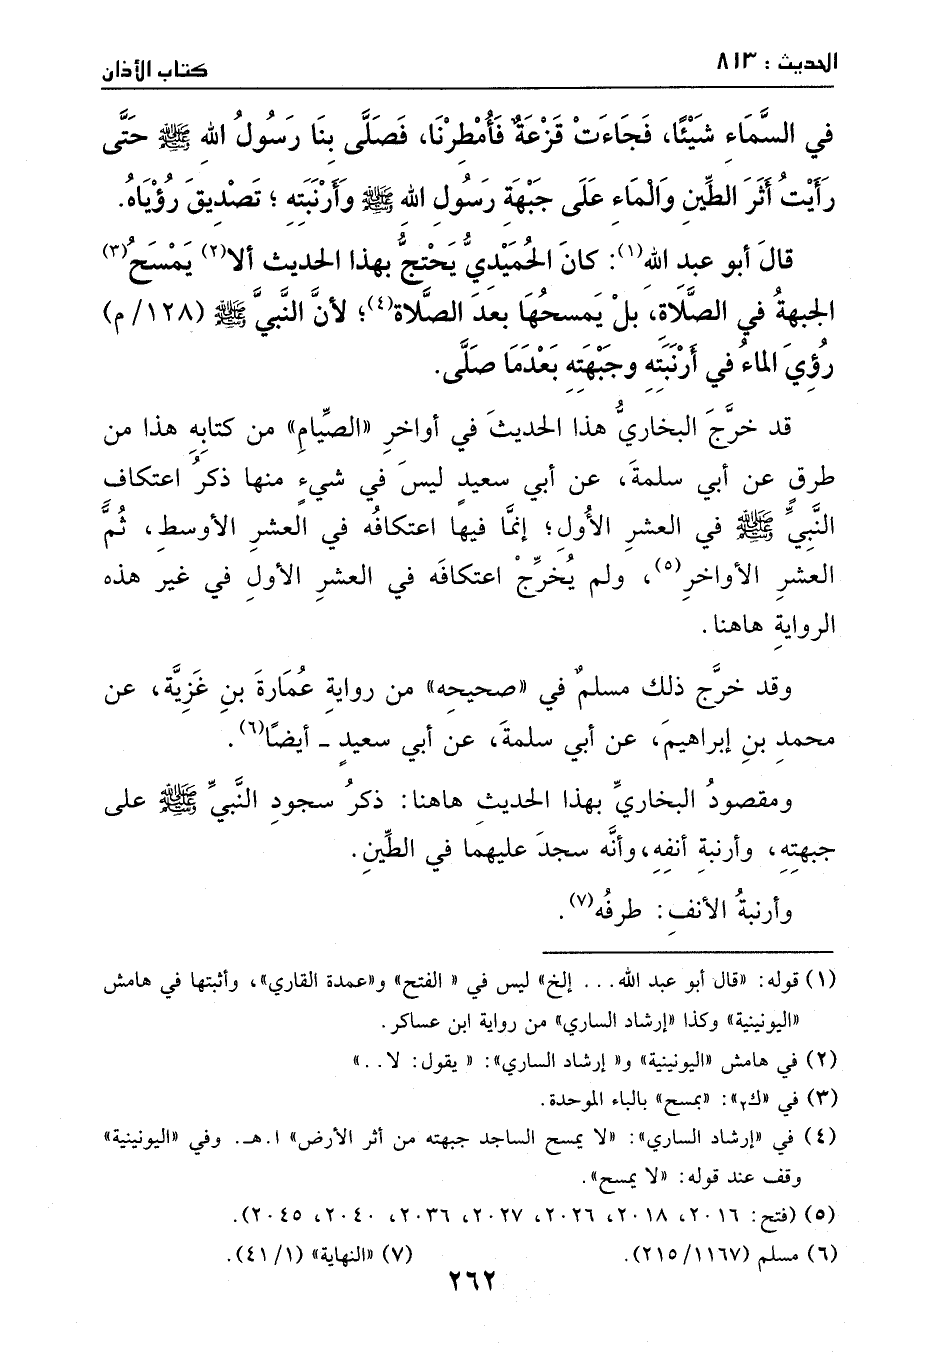 الحديث : ٨١٣
كتاب الأذان
في السَّمَاءِ شَيْئًا، فَجَاءَتْ قَزْعَةٌ فَأُمْطِرْنَا، فَصَلَّى بِنَا رَسُولُ اللهِ ﷺ حَتَّى
رَأَيْتُ أَثَرَ الطِّينِ وَالْمَاءِ عَلَى جَبْهَةِ رَسُولِ اللهِ ﷺ وَأَرْنَبَتِهِ ؛ تَصْدِيقَ رُؤْيَاهُ.
قالَ أبو عبدِ اللهِ(١): كانَ الحُمَيْدِيُّ يَحْتجُّ بهذا الحديثِ ألا(٢) يَمْسَحُ(٣)
الجبهةُ في الصَّلَاةِ، بلْ يَمسحُهَا بعدَ الصَّلاةِ(٤)؛ لأنَّ النَّبيَّ ﷺ (١٢٨/ م)
رُؤِيَ الماءُ في أَرْنَبَتِهِ وجَبْهَتِهِ بَعْدَمَا صَلَّى.
قد خرَّجَ البخاريُّ هذا الحديثَ في أواخرِ «الصِّيامِ» من كتابِهِ هذا من
طرقٍ عن أبي سلمةَ، عن أبي سعيدٍ ليسَ في شيءٍ منها ذكرُ اعتكافِ
النَّبيِّ ﷺ في العشرِ الأُولِ؛ إنَّما فيها اعتكافُه في العشرِ الأوسطِ، ثُمَّ
العشرِ الأواخرِ(٥)، ولم يُخرِّجْ اعتكافَه في العشرِ الأولِ في غيرِ هذه
الروايةِ هاهنا.
وقد خرَّج ذلك مسلمٌ في «صحيحِه» من روايةِ عُمَارةَ بنِ غَزِيَّة، عن
محمدِ بنِ إبراهيمَ، عن أبي سلمةَ، عن أبي سعيدٍ ـ أيضًا(٦).
ومقصودُ البخاريِّ بهذا الحديثِ هاهنا: ذكرُ سجودِ النَّبيِّ ﷺ على
جبهتِهِ، وأرنبةِ أنفِهِ، وأنَّه سجدَ عليهما في الطِّينِ.
وأرنبةُ الأنفِ: طرفُه(٧).
(١) قوله: «قال أبو عبد الله... إلخ» ليس في « الفتح» و«عمدة القاري»، وأثبتها في هامش
«اليونينية» وكذا «إرشاد الساري» من رواية ابن عساكر.
(٢) في هامش «اليونينية» و« إرشاد الساري»: « يقول: لا..»
(٣) في «ك٢»: «بمسح» بالباء الموحدة.
(٤) في «إرشاد الساري»: «لا يمسح الساجد جبهته من أثر الأرض» ا.هـ. وفي «اليونينية»
وقف عند قوله: «لا يمسح».
(٥) (فتح: ٢٠١٦، ٢٠١٨، ٢٠٢٦، ٢٠٢٧، ٢٠٣٦، ٢٠٤٠، ٢٠٤٥).
(٦) مسلم (٢١٥/١١٦٧). (٧) «النهاية» (٤١/١).
٢٦٢